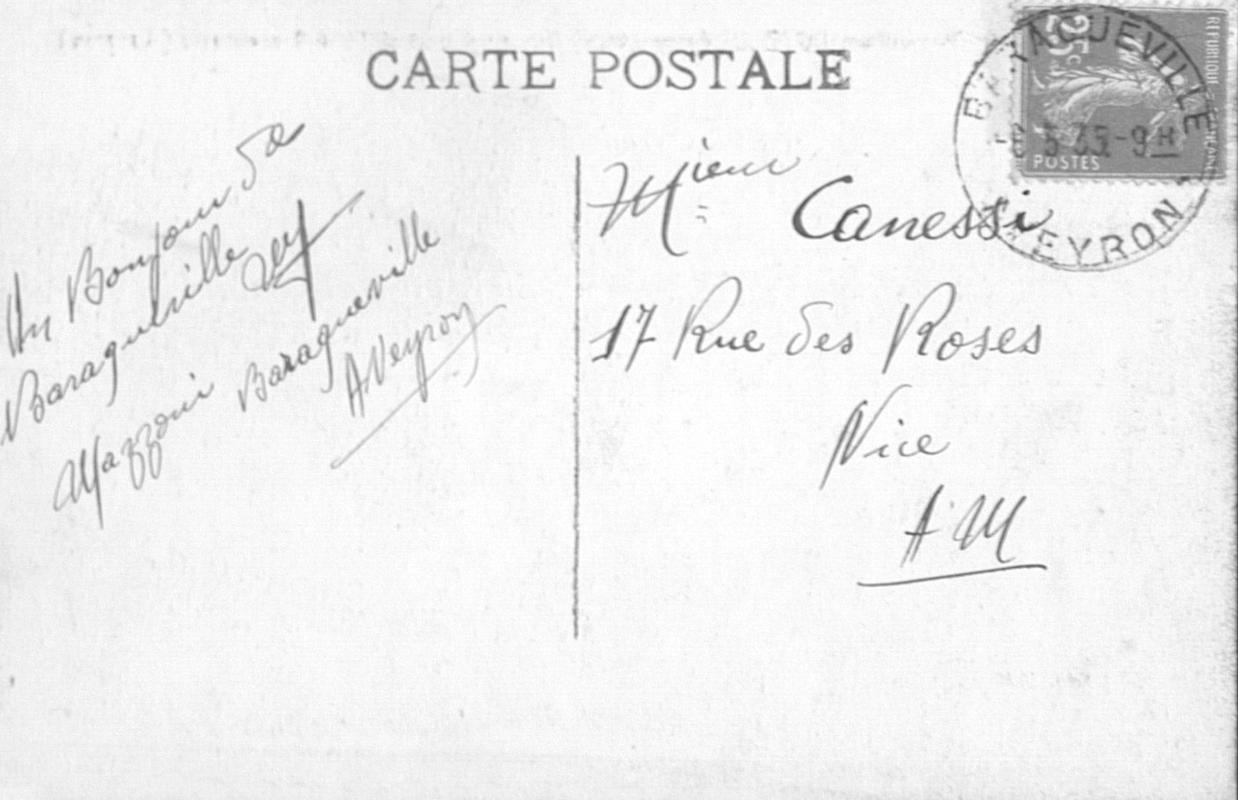 CARTE POSTALE
Un Bonjour de
Baraqueville
Mazzoni Baraqueville
Aveyron
Mr ieur Canessi
17 Rue des Roses
Nice
A M
25c
POSTES
BARAQUEVILLE
5 35 - 9H
AVEYRON